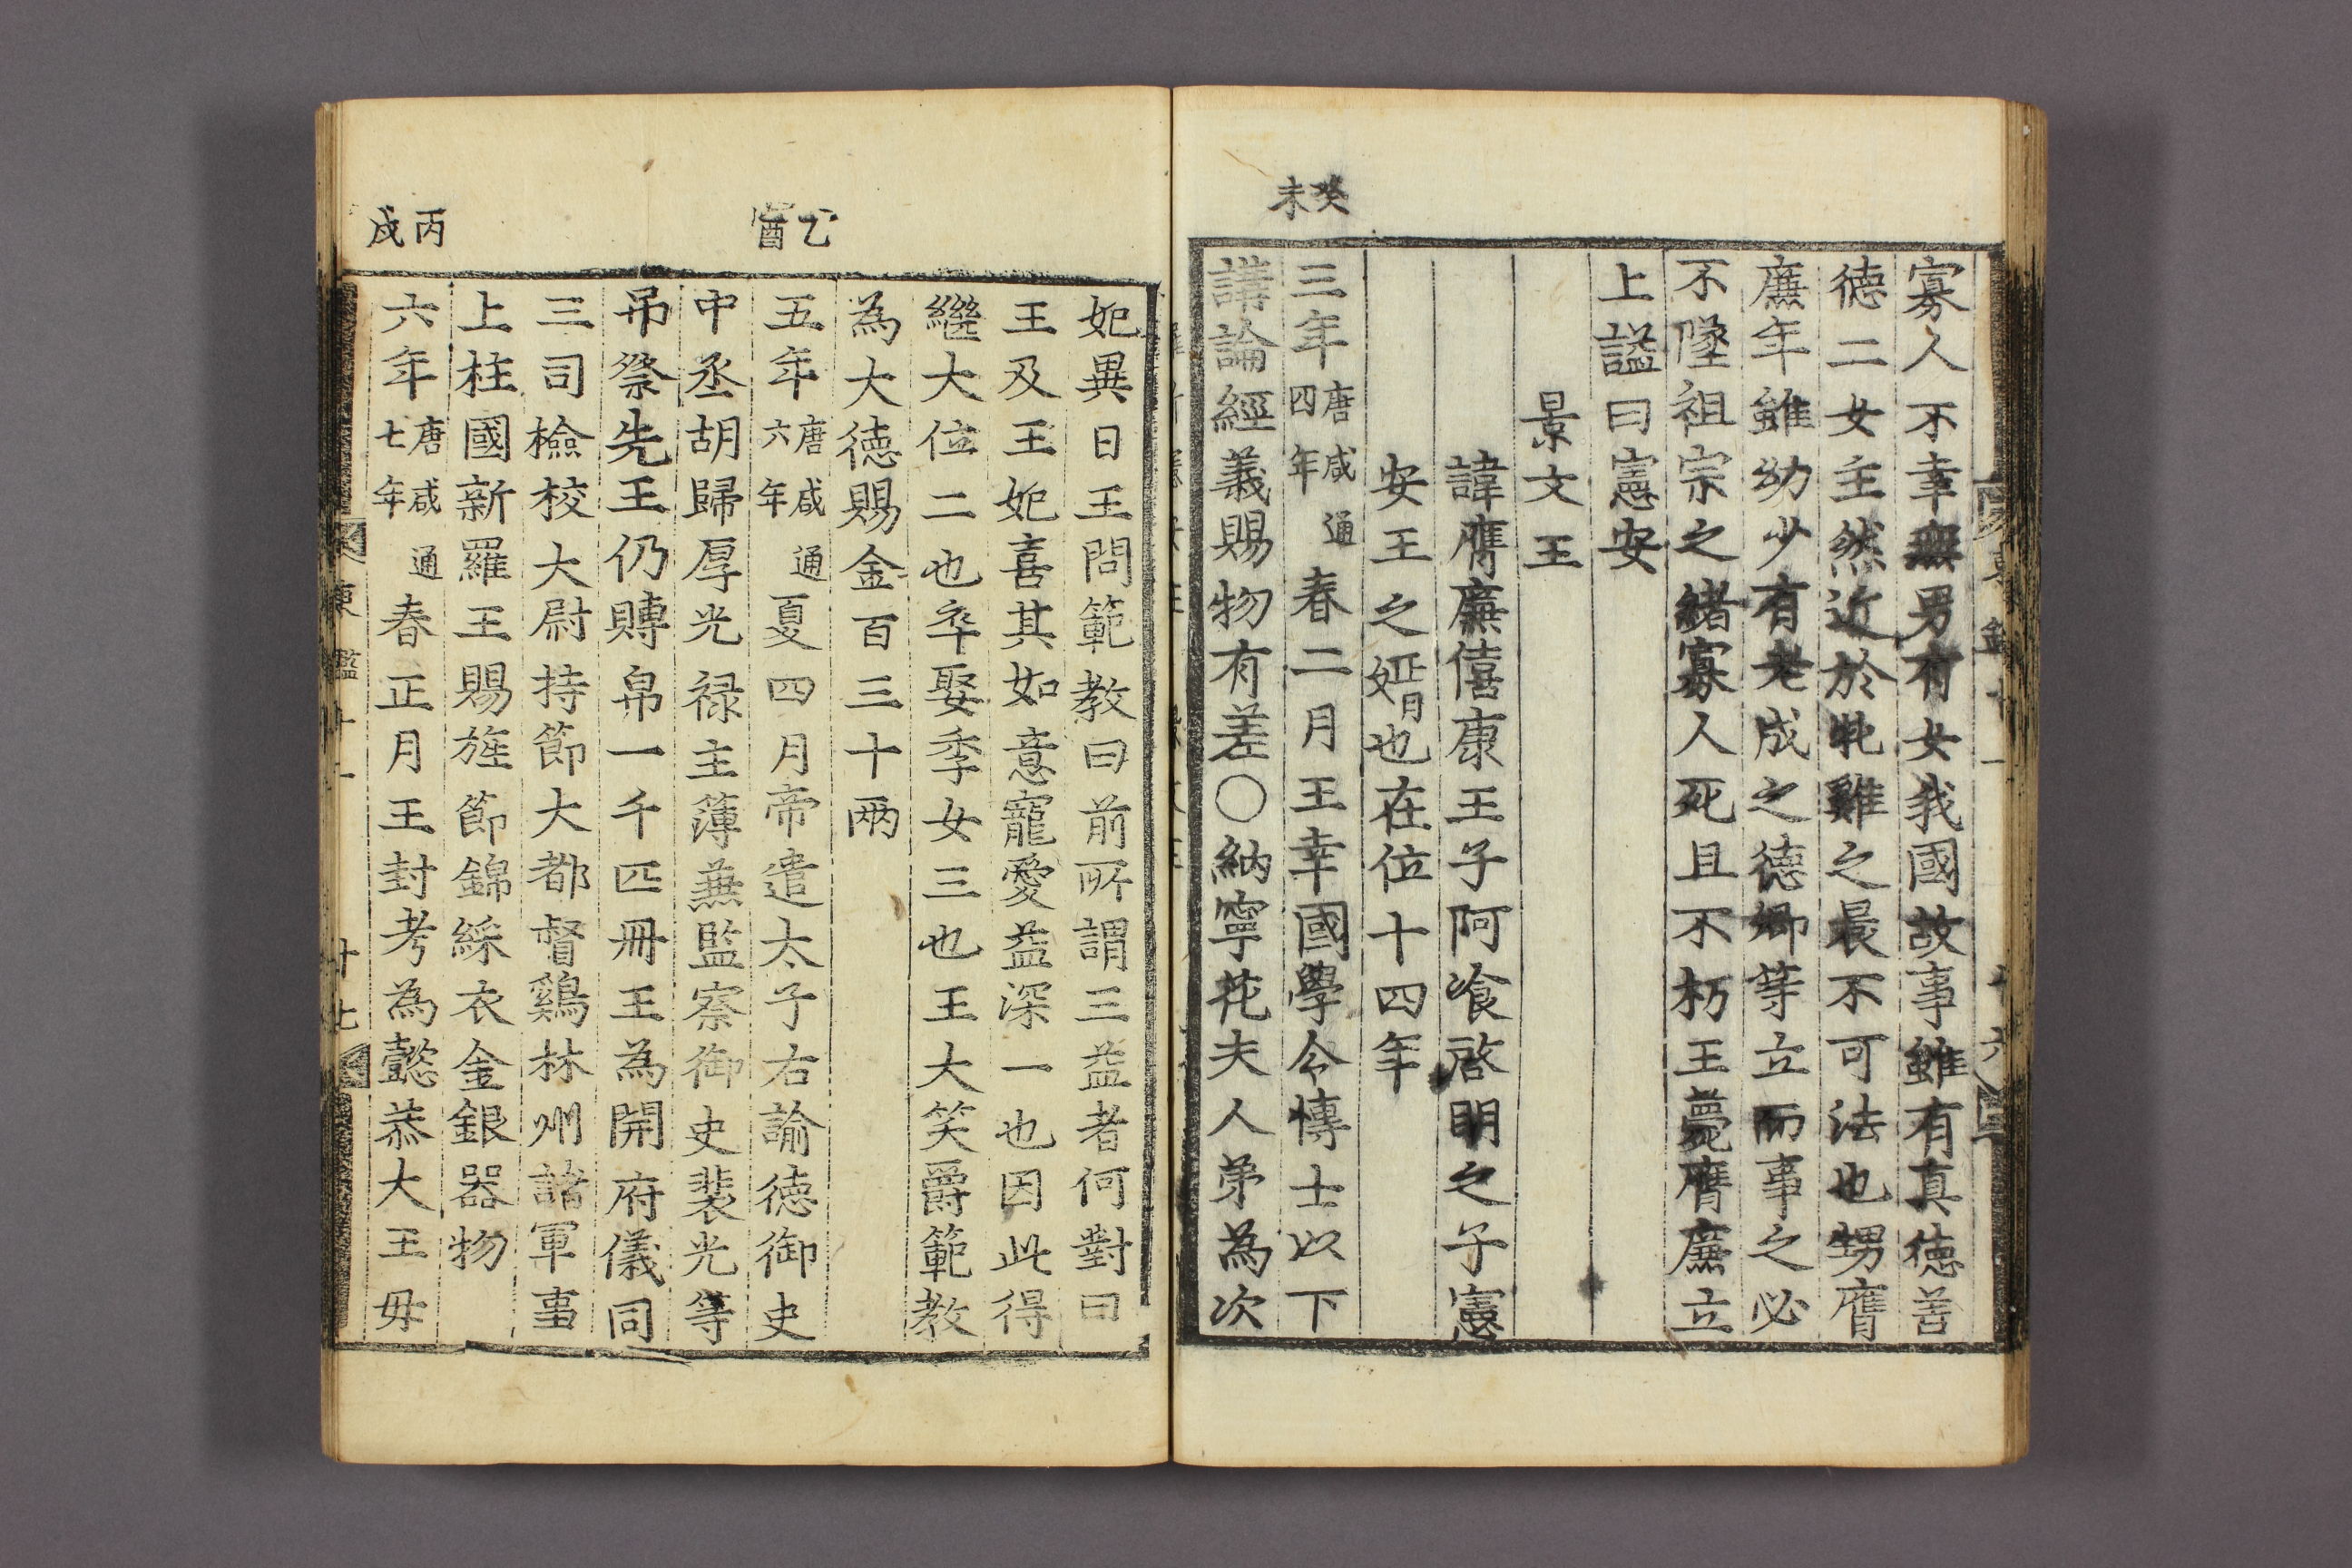 癸未
寡人不幸無男有女我國故事雖有真德善
德二女主然近於牝雞之晨不可法也甥膺
廉年雖幼少有老成之德卿等立而事之必
不墜祖宗之緒寡人死且不朽王薨膺廉立
上諡曰憲安
景文王
諱膺廉僖康王子阿飡啓明之子憲
安王之婿也在位十四年
三年唐咸通四年春二月王幸國學令博士以下
講論經義賜物有差○納寧花夫人弟為次
乙酉
丙戌
妃異日王問範教曰前所謂三益者何對曰
王及王妃喜其如意寵愛益深一也因此得
繼大位二也卒娶季女三也王大笑爵範教
為大德賜金百三十兩
五年唐咸通六年夏四月帝遣太子右諭德御史
中丞胡歸厚光祿主簿兼監察御史裴光等
吊祭先王仍賻帛一千匹冊王為開府儀同
三司檢校大尉持節大都督鷄林州諸軍事
上柱國新羅王賜旌節錦綵衣金銀器物
六年唐咸通七年春正月王封考為懿恭大王母
東鑑十一
十七